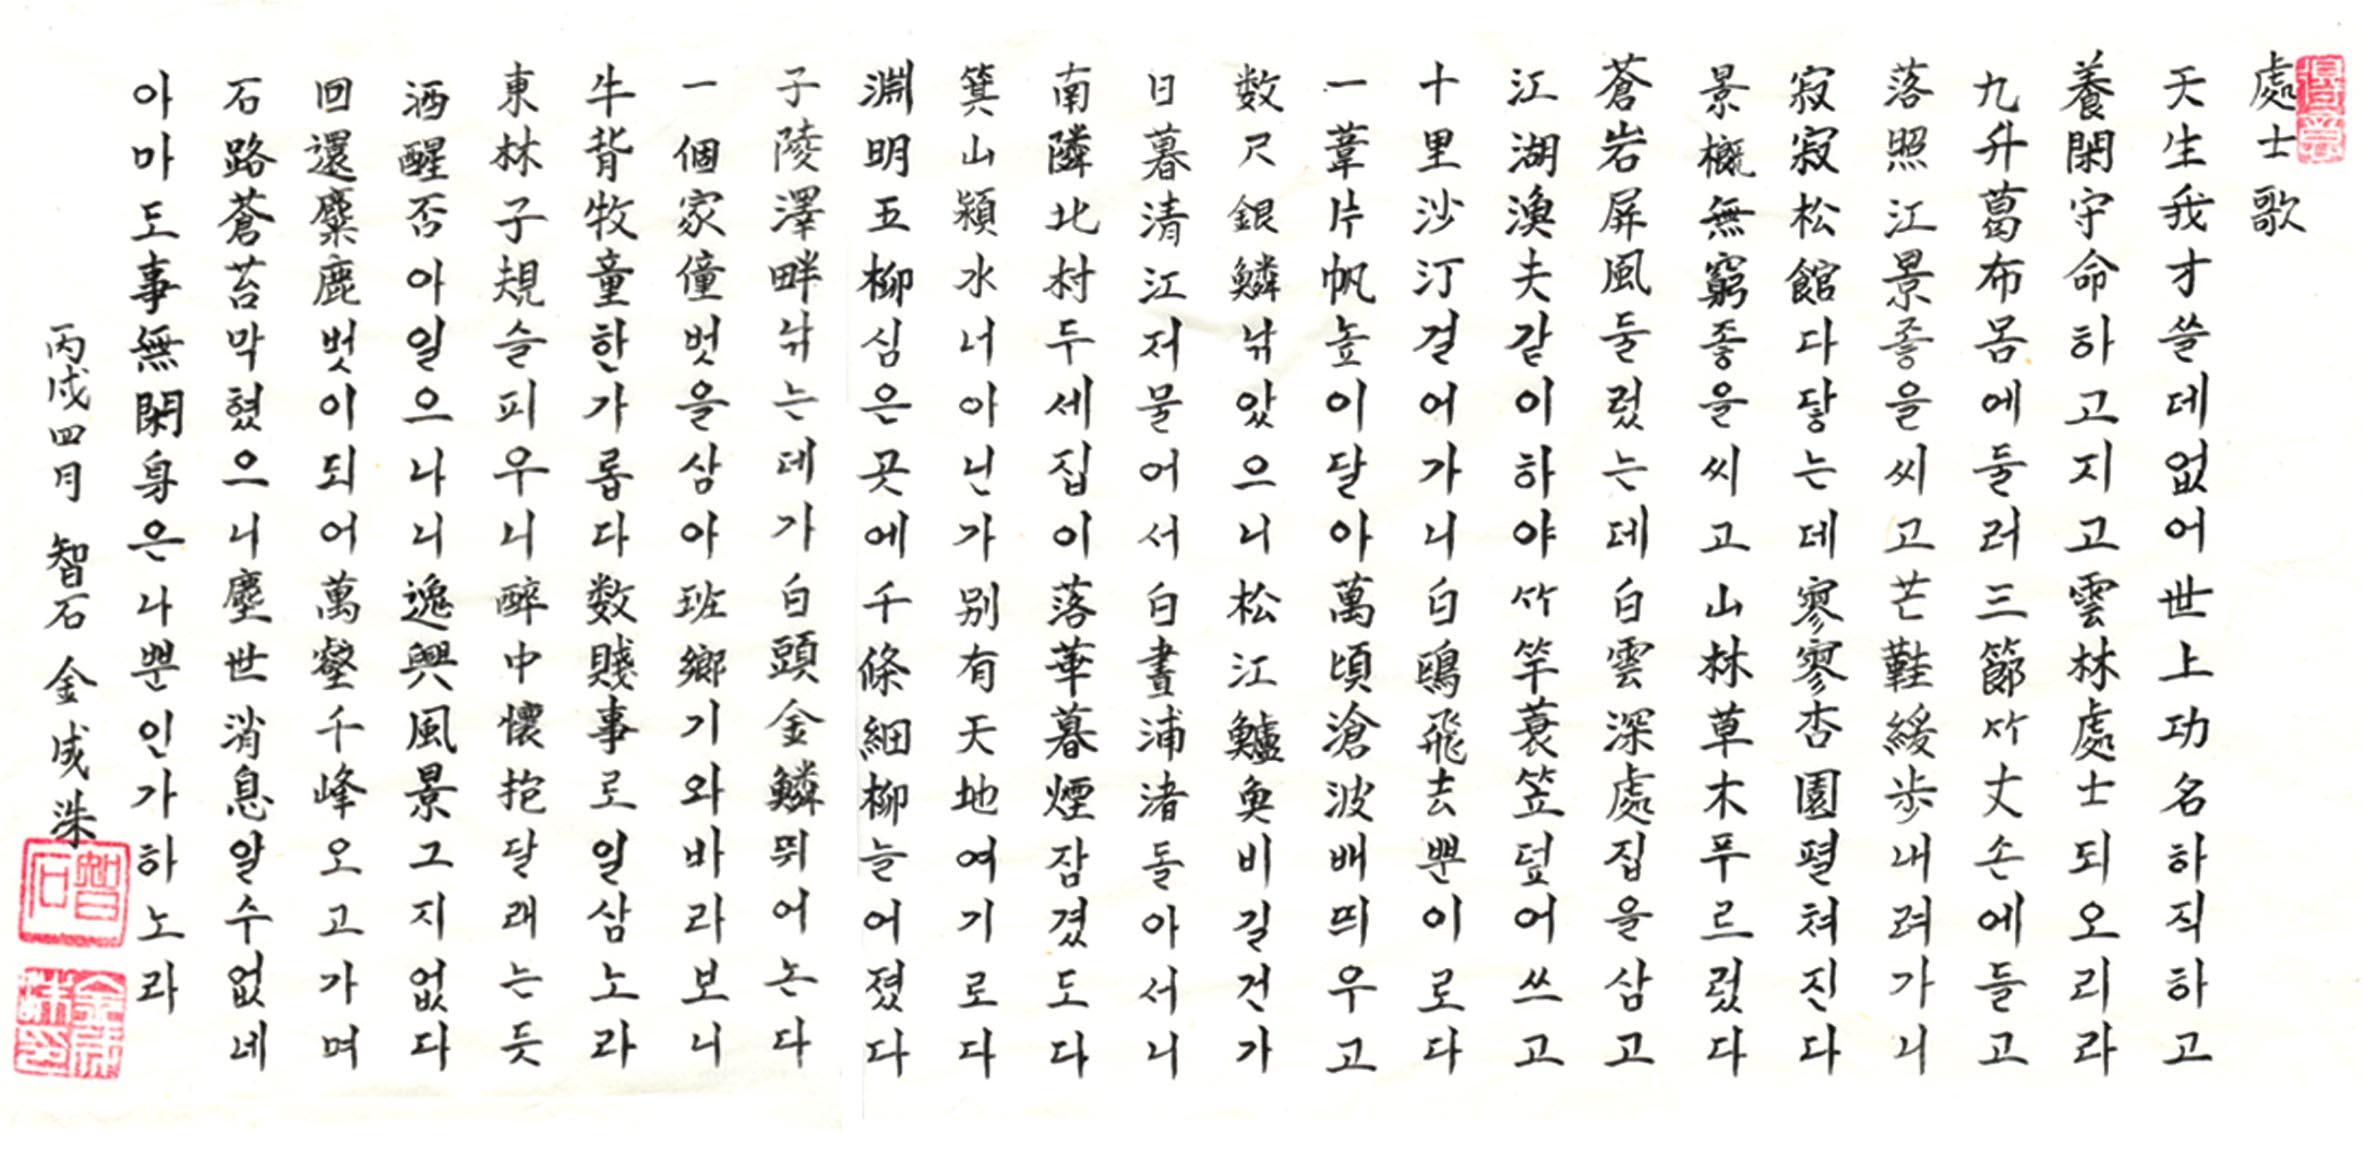 處士歌
天生我才쓸데없어世上功名하직하고
養閑守命하고지고雲林處士되오리라
九升葛布몸에둘러三節竹丈손에들고
落照江景좋을씨고芒鞋緩步내려가니
寂寂松館다닿는데寥寥杏園폍쳐진다
景槪無窮좋을씨고山林草木푸르렀다
蒼岩屛風둘렀는데白雲深處집을삼고
江湖漁夫같이하야竹竿蓑笠덮어쓰고
十里沙汀걸어가니白鷗飛去뿐이로다
一葦片帆높이달아萬頃滄波배띄우고
数尺銀鱗낚았으니松江鱸魚비길건가
日暮清江저물어서白晝浦渚돌아서니
南隣北村두세집이落華暮煙잠겼도다
箕山潁水너아닌가別有天地여기로다
淵明五柳심은곳에千條細柳늘어졌다
子陵澤畔낚는데가白頭金鱗뛰어논다
一個家僮벗을삼아班鄉기와바라보니
牛背牧童한가롭다数賤事로일삼노라
東林子規슬피우니醉中懷抱달래는듯
酒醒否아일으나니逸興風景그지없다
回還麋鹿벗이되어萬壑千峰오고가며
石路蒼苔막혔으니塵世消息알수없네
아마도事無閑身은나뿐인가하노라
丙戌四月 智石 金成洙
智石